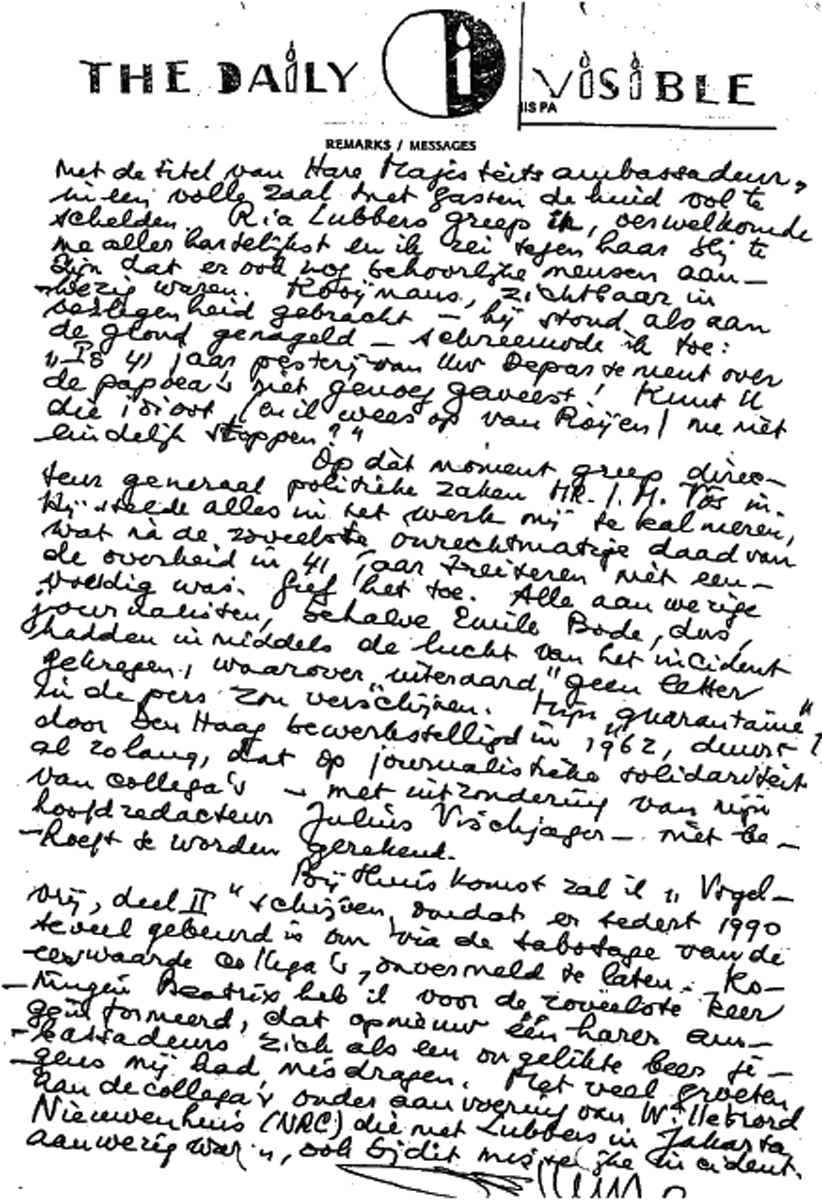 THE DAILY i VISIBLE
IIS PA
REMARKS / MESSAGES
met de titel van Hare Majesteits ambassadeur,
in een volle zaal met gasten de huid vol te
schelden. Ria Lubbers greep in, verwelkomde
me aller hartelijkst en ik zei tegen haar blij te
zijn dat er ook nog behoorlijke mensen aan-
-wezig waren. Kooijmans, zichtbaar in
verlegenheid gebracht - hij stond als aan
de grond genageld - schreeuwde ik toe:
"Is 41 jaar pesterij van Uw Departement over
de papoea's niet genoeg geweest! Kunt U
die idioot, (en ik wees op van Roijen) nu niet
eindelijk stoppen?"
Op dàt moment greep direc-
teur generaal politieke zaken Mr. I. M. Vos in.
Hij stelde alles in het werk mij te kalmeren,
wat nà de zoveelste onrechtmatige daad van
de overheid in 41 jaar treiteren niet een-
voudig was. Geef het toe. Alle aanwezige
journalisten, behalve Emile Bode, dus,
hadden inmiddels de lucht van het incident
gekregen, waarover "uiteraard" geen letter
in de pers zou verschijnen. Mijn "quarantaine"
door Den Haag bewerkstelligd in 1962, duurt
al zolang, dat op journalistieke solidariteit
van collega's - met uitzondering van mijn
hoofdredacteur Julius Vischjager - niet be-
-hoeft te worden gerekend.
Bij thuiskomst zal ik "Vogel-
vrij, deel II" schrijven, omdat er sedert 1990
teveel gebeurd is om via de sabotage van de
eerwaarde collega's, onvermeld te laten. Ko-
-ningin Beatrix heb ik voor de zoveelste keer
geïnformeerd, dat opnieuw één harer am-
-bassadeurs zich als een ongelikte beer je-
-gens mij had misdragen. Met veel groeten
aan de collega's onder aanvoering van Willebrord
Nieuwenhuis (NRC) die met Lubbers in Jakarta
aanwezig waren, ook bij dit incident.